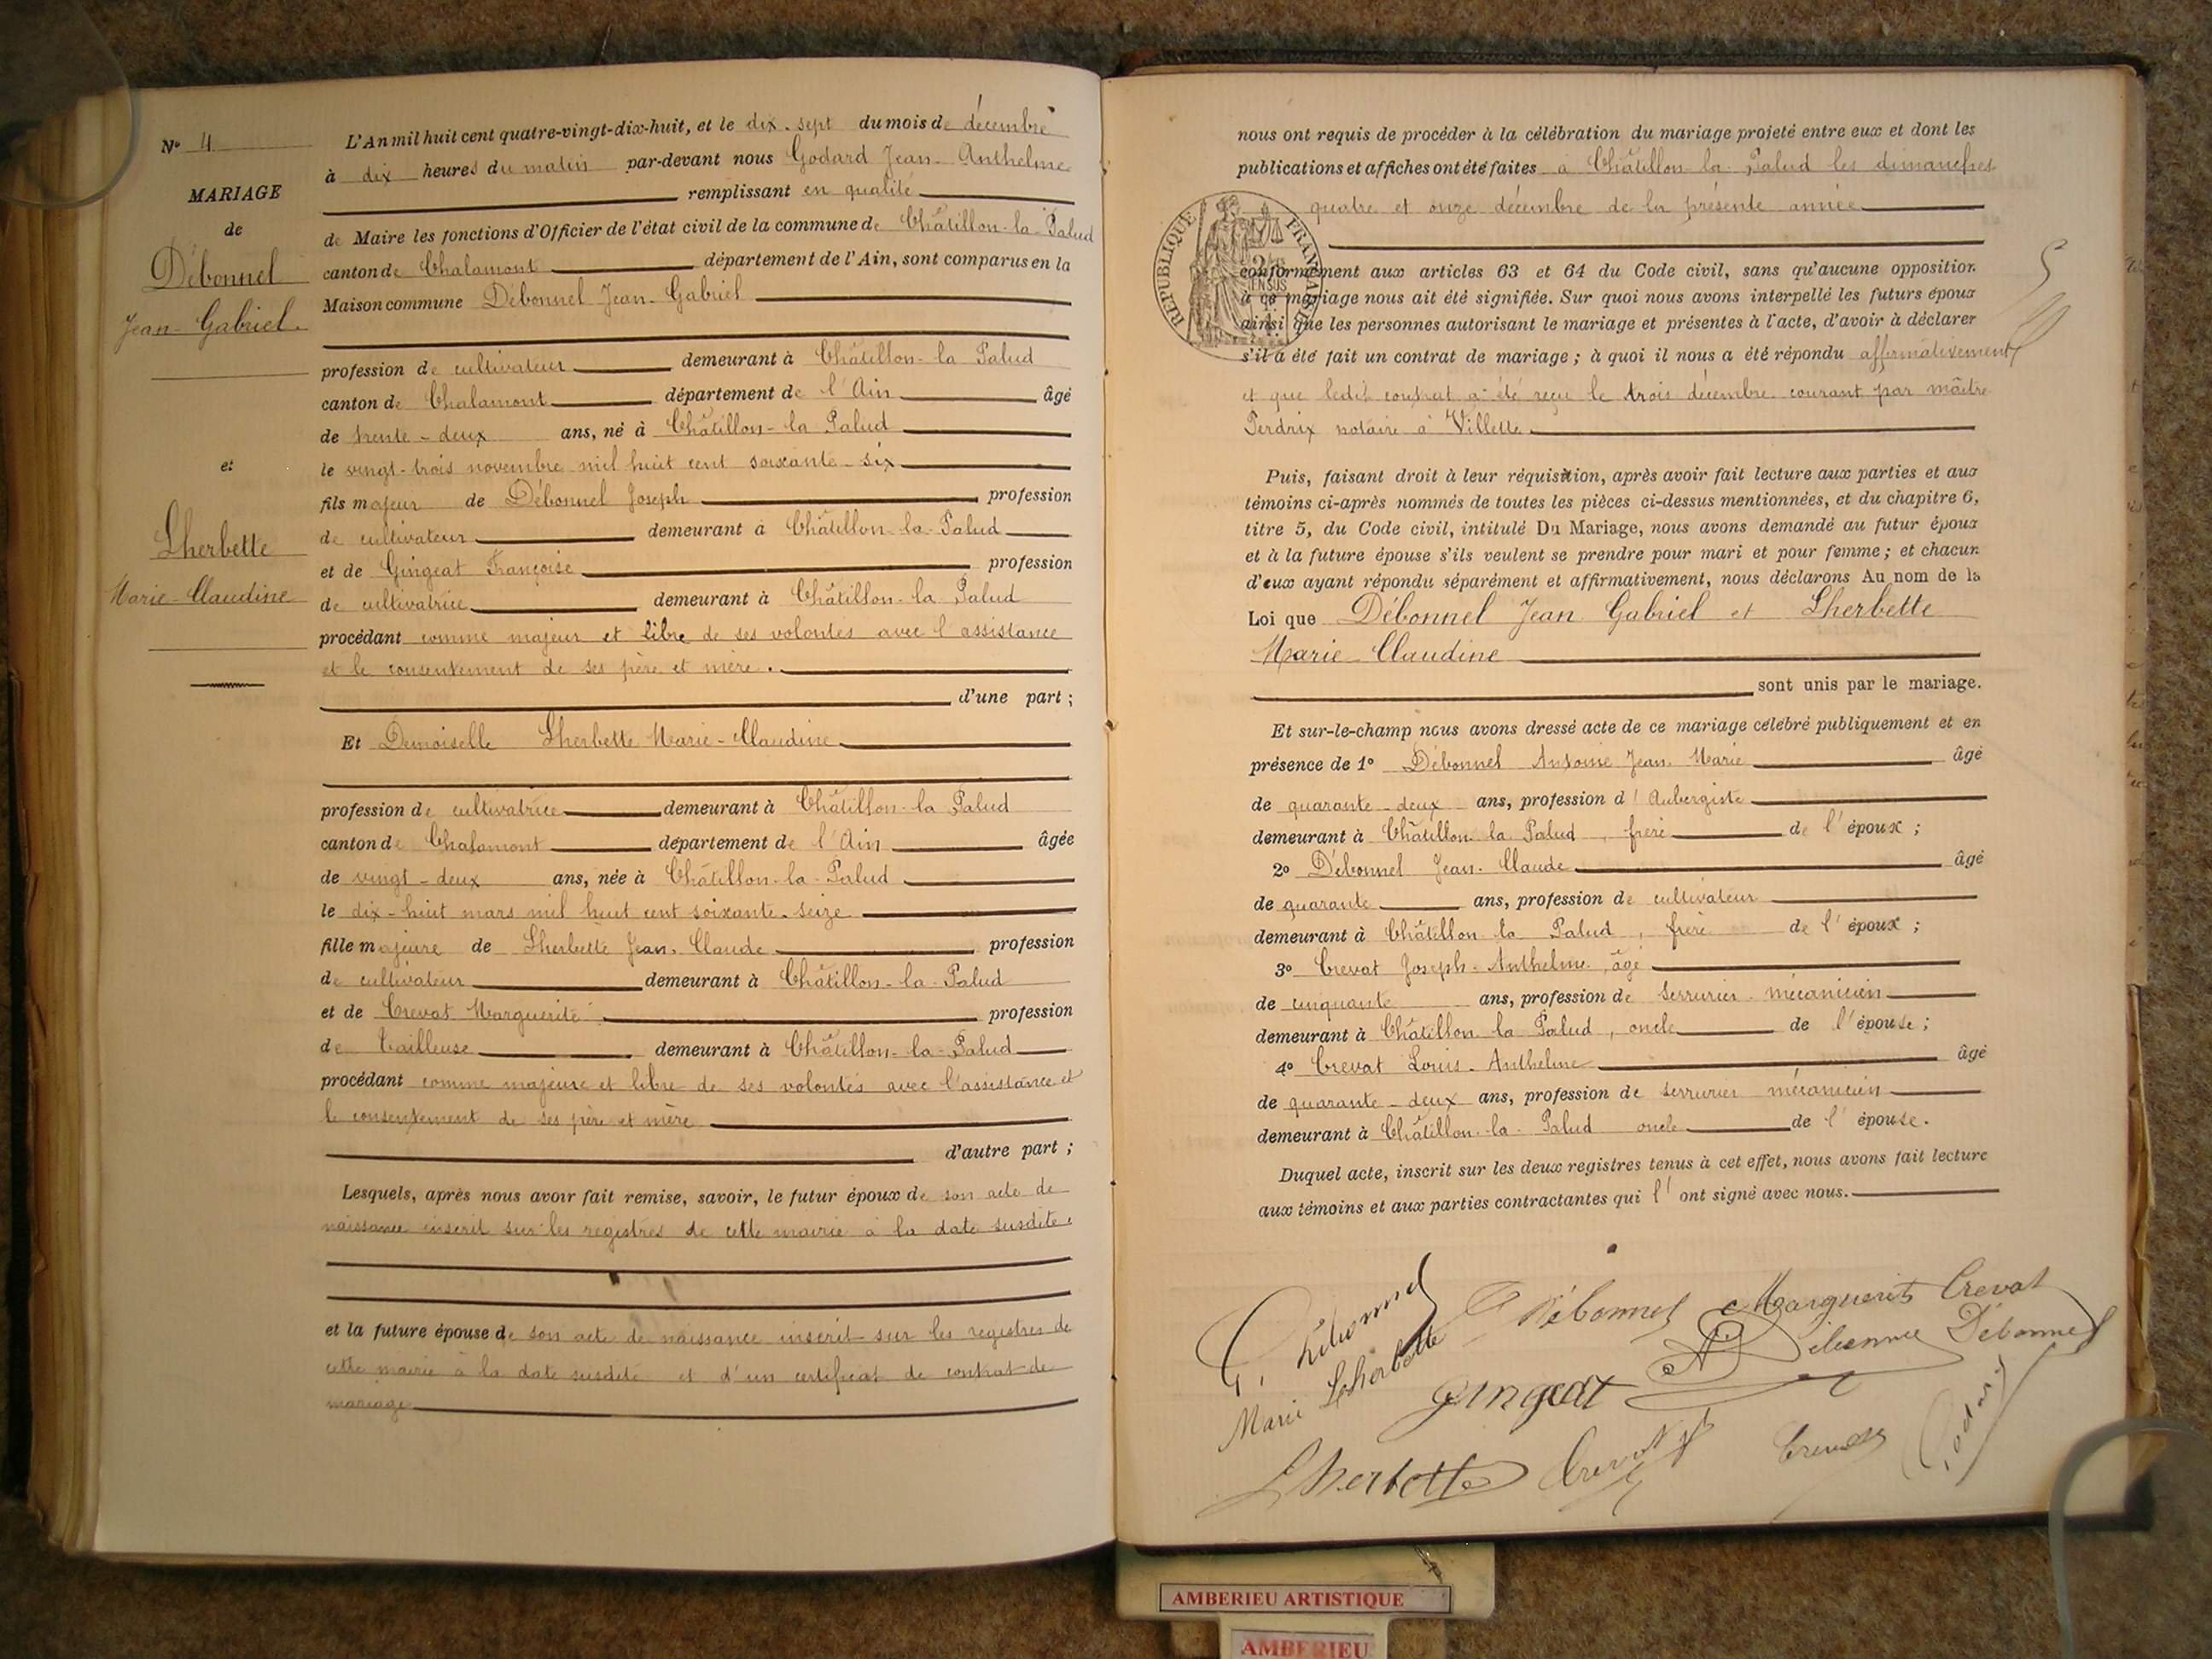 Nº 4
MARIAGE
de
Débonnel
Jean-Gabriel.
et
Lherbette
Marie-Claudine
L'An mil huit cent quatre-vingt-dix-huit, et le dix-sept du mois de décembre
à dix heures du matin par-devant nous Godard Jean-Anthelme
remplissant en qualité
de Maire les fonctions d'Officier de l'état civil de la commune de Châtillon-la-Palud
canton de Chalamont département de l'Ain, sont comparus en la
Maison commune Débonnel Jean-Gabriel
profession de cultivateur demeurant à Châtillon-la Palud
canton de Chalamont département de l'Ain âgé
de trente-deux ans, né à Châtillon-la Palud
le vingt-trois novembre mil huit cent soixante-six
fils majeur de Débonnel Joseph profession
de cultivateur demeurant à Châtillon-la-Palud
et de Gingeat Françoise profession
de cultivatrice demeurant à Châtillon-la Palud
procédant comme majeur et libre de ses volontés avec l'assistance
et le consentement de ses père et mère.
d'une part ;
Et Demoiselle Lherbette Marie-Claudine
profession de cultivatrice demeurant à Châtillon-la Palud
canton de Chalamont département de l'Ain âgée
de vingt-deux ans, née à Châtillon-la-Palud
le dix-huit mars mil huit cent soixante-seize
fille majeure de Lherbette Jean-Claude profession
de cultivateur demeurant à Châtillon-la-Palud
et de Crevat Marguerite profession
de Tailleuse demeurant à Châtillon-la-Palud
procédant comme majeure et libre de ses volontés avec l'assistance et
le consentement de ses père et mère
d'autre part ;
Lesquels, après nous avoir fait remise, savoir, le futur époux de son acte de
naissance inscrit sur les registres de cette mairie à la date susdite
et la future épouse de son acte de naissance inscrit sur les registres de
cette mairie à la date susdite et d'un certificat de contrat de
mariage
nous ont requis de procéder à la célébration du mariage projeté entre eux et dont les
publications et affiches ont été faites à Châtillon-la-Palud les dimanches
quatre et onze décembre de la présente année
RÉPUBLIQUE FRANÇAISE
conformément aux articles 63 et 64 du Code civil, sans qu'aucune opposition
à ce mariage nous ait été signifiée. Sur quoi nous avons interpellé les futurs époux
ainsi que les personnes autorisant le mariage et présentes à l'acte, d'avoir à déclarer
s'il a été fait un contrat de mariage ; à quoi il nous a été répondu affirmativement
et que ledit contrat a été reçu le trois décembre courant par maître
Perdrix notaire à Villette
Puis, faisant droit à leur réquisition, après avoir fait lecture aux parties et aux
témoins ci-après nommés de toutes les pièces ci-dessus mentionnées, et du chapitre 6,
titre 5, du Code civil, intitulé Du Mariage, nous avons demandé au futur époux
et à la future épouse s'ils veulent se prendre pour mari et pour femme ; et chacun
d'eux ayant répondu séparément et affirmativement, nous déclarons Au nom de la
Loi que Débonnel Jean Gabriel et Lherbette
Marie-Claudine
sont unis par le mariage.
Et sur-le-champ nous avons dressé acte de ce mariage célébré publiquement et en
présence de 1º Débonnel Antoine Jean Marie âgé
de quarante-deux ans, profession d'Aubergiste
demeurant à Châtillon-la Palud, frère de l'époux ;
2º Débonnel Jean-Claude âgé
de quarante ans, profession de cultivateur
demeurant à Châtillon la Palud, frère de l'époux ;
3º Crevat Joseph-Anthelme, âgé
de cinquante ans, profession de serrurier-mécanicien
demeurant à Châtillon la Palud, oncle de l'épouse ;
4º Crevat Louis-Anthelme âgé
de quarante-deux ans, profession de serrurier mécanicien
demeurant à Châtillon-la-Palud oncle de l'épouse.
Duquel acte, inscrit sur les deux registres tenus à cet effet, nous avons fait lecture
aux témoins et aux parties contractantes qui l'ont signé avec nous.
Débonnel Marguerite Crevat
Marie Lherbette
Gingeat
Débonnel
Lherbette Crevat Godard
AMBERIEU ARTISTIQUE
AMBERIEU